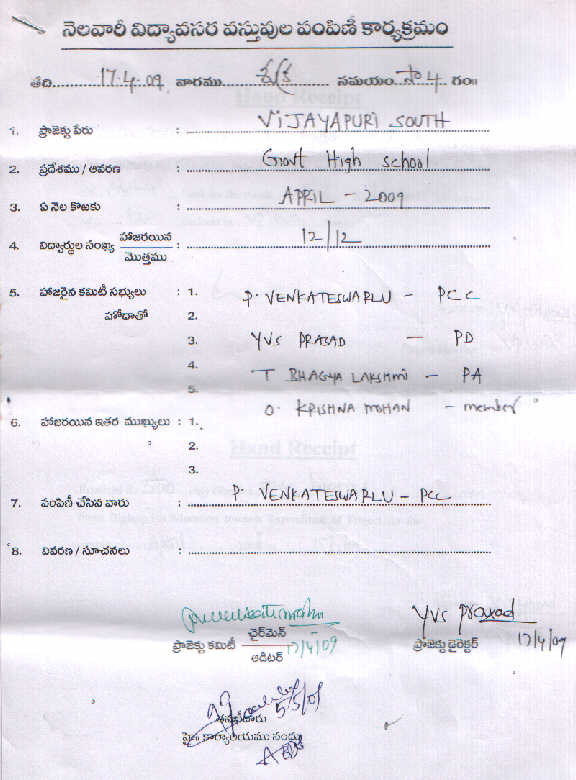 నెలవారీ విద్యావసర వస్తువుల పంపిణీ కార్యక్రమం
తేది 17.4.09 వారము శుక్ర సమయం సా 4 గం॥
1. ప్రాజెక్టు పేరు : VIJAYAPURI SOUTH
2. ప్రదేశము / ఆవరణ : Govt High school
3. ఏ నెల కొఱకు : APRIL - 2009
4. విద్యార్థుల సంఖ్య హాజరయిన / మొత్తము : 12/12
5. హాజరైన కమిటీ సభ్యులు : 1. P. VENKATESWARLU - PCC
హోదాతో 2.
3. YVS PRASAD - PD
4. T BHAGYA LAKSHMI - PA
5. O. KRISHNA MOHAN - member
6. హాజరయిన ఇతర ముఖ్యులు : 1.
2.
3.
7. పంపిణీ చేసిన వారు : P. VENKATESWARLU - PCC
8. వివరణ / సూచనలు :
YVS Prasad
ప్రాజెక్టు కమిటీ ఛైర్‌మెన్ / ఆడిటర్ 17/4/09
ప్రాజెక్టు డైరెక్టర్ 17/4/09
5/5/09
Hand Receipt
Hand Receipt